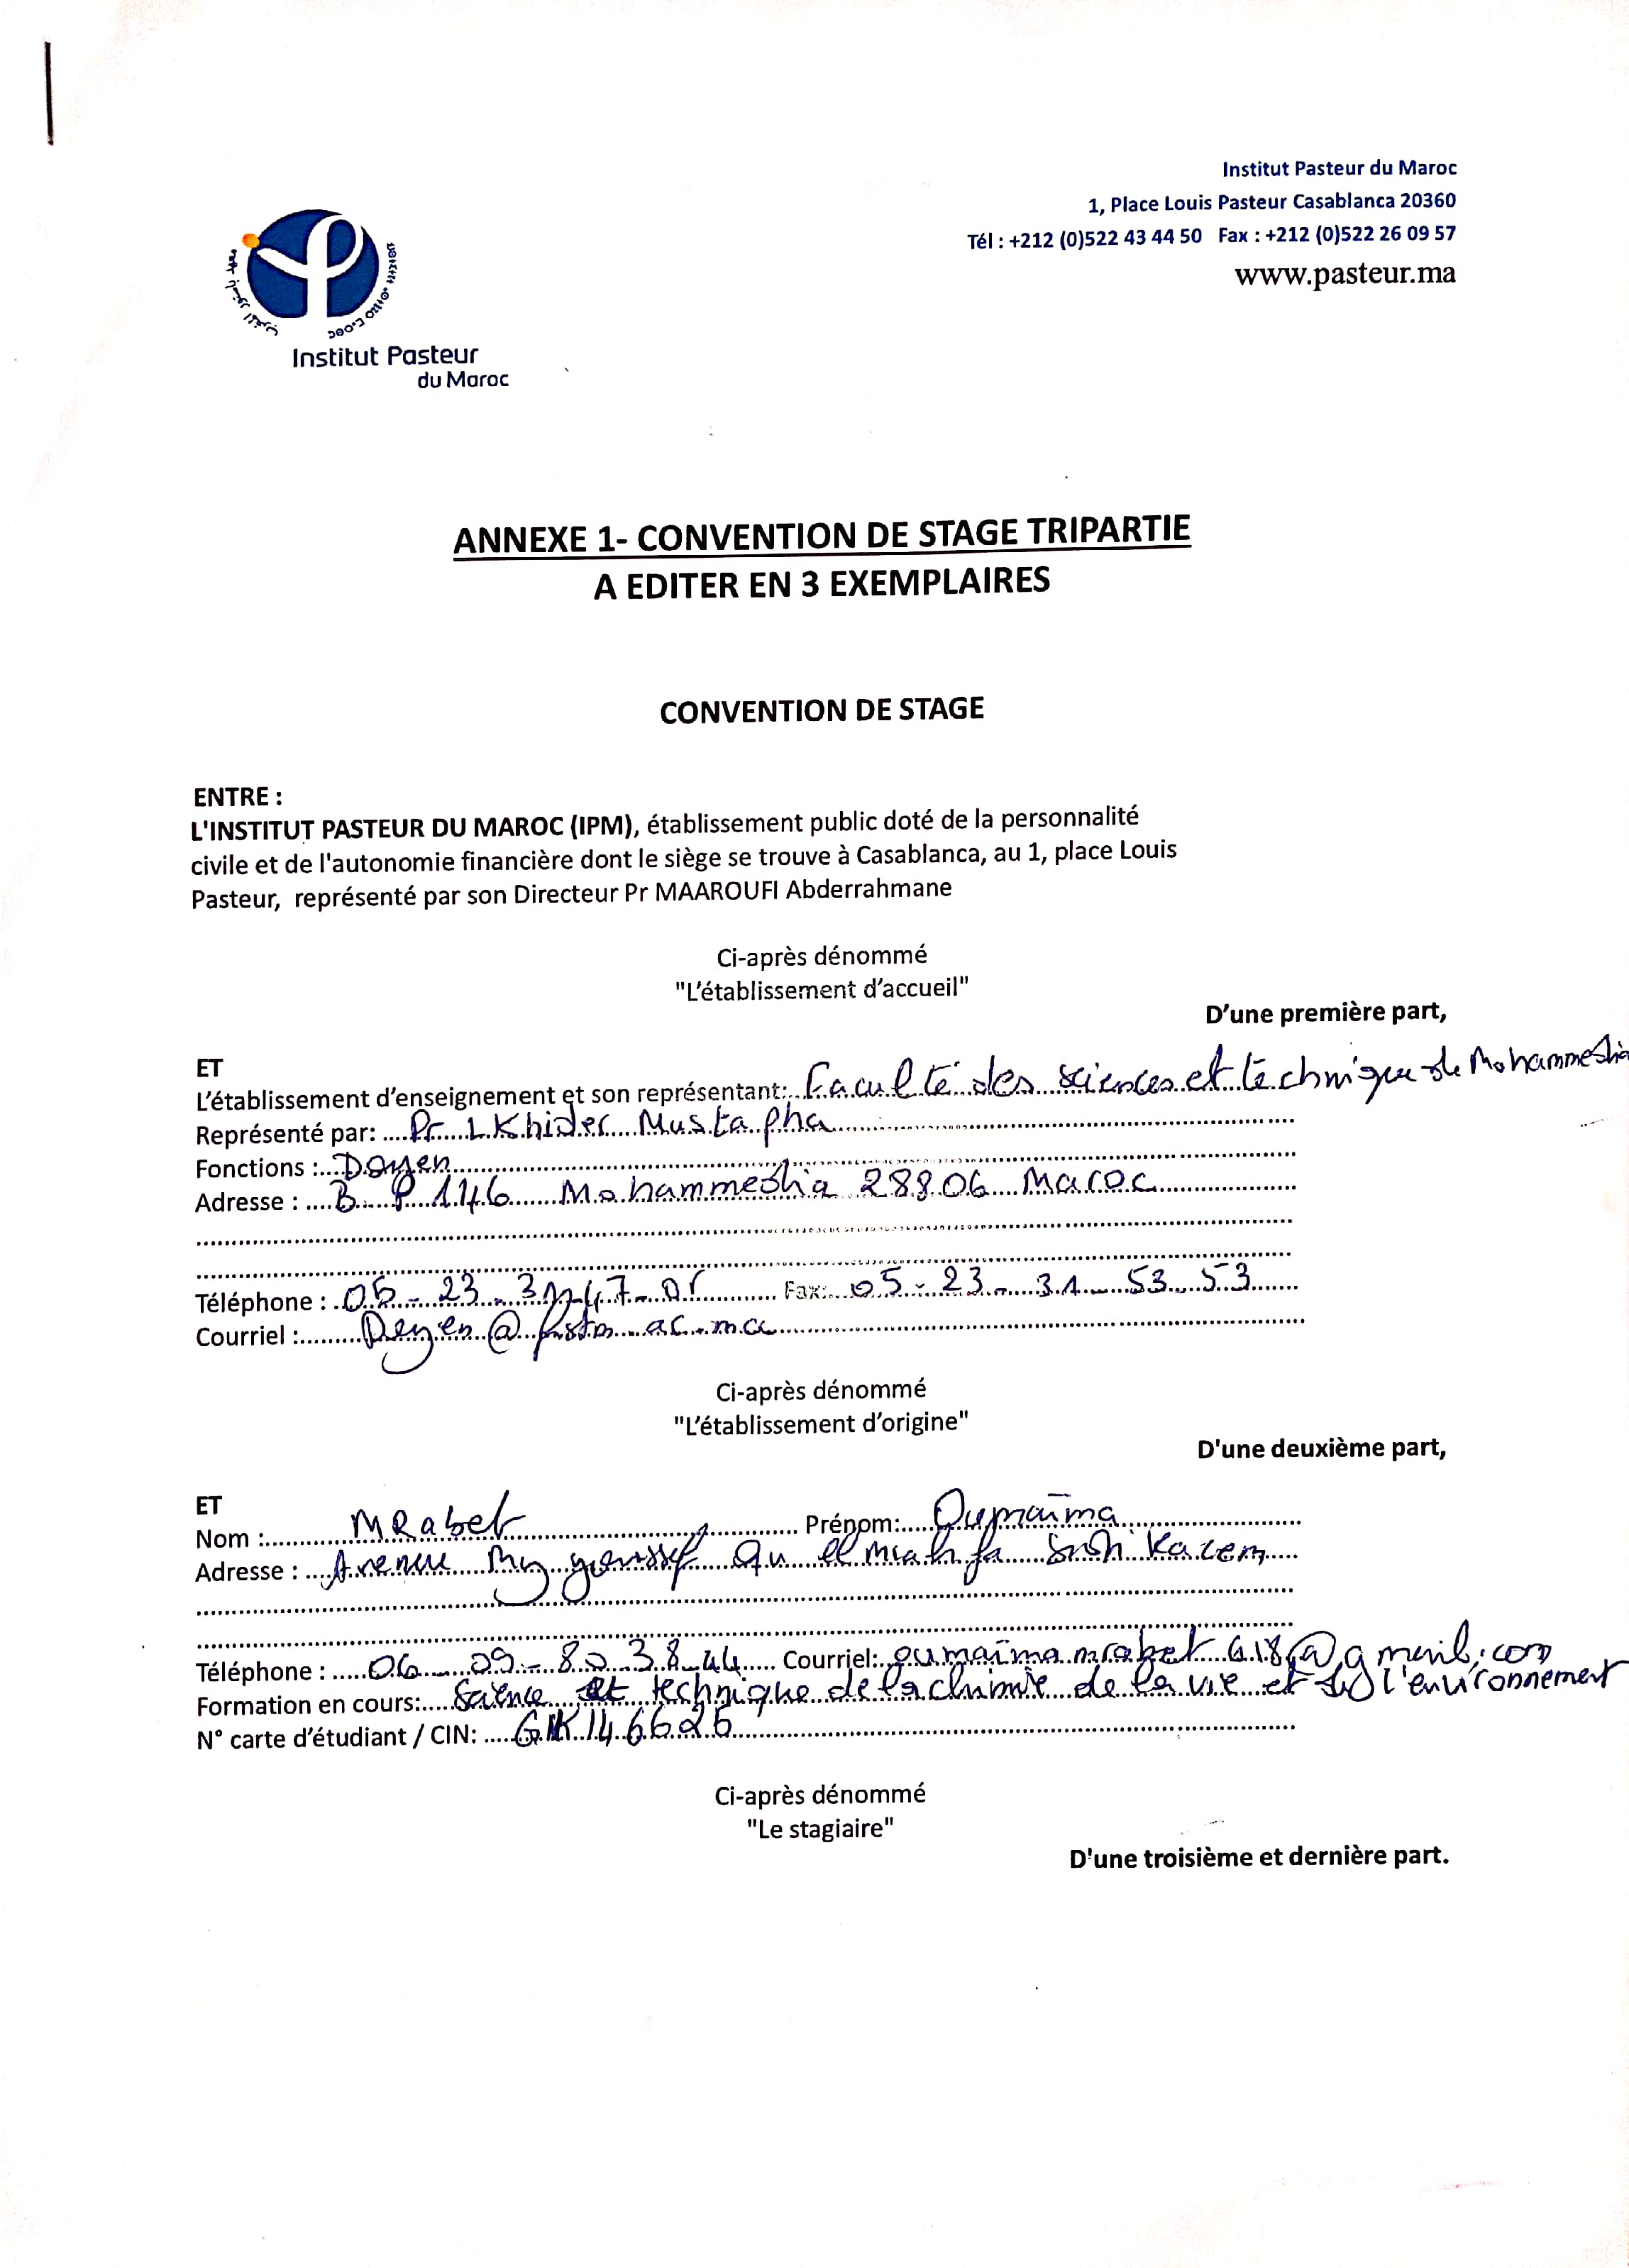 Institut Pasteur du Maroc
1, Place Louis Pasteur Casablanca 20360
Tél : +212 (0)522 43 44 50 Fax : +212 (0)522 26 09 57
www.pasteur.ma
Institut Pasteur
du Maroc
ANNEXE 1- CONVENTION DE STAGE TRIPARTIE
A EDITER EN 3 EXEMPLAIRES
CONVENTION DE STAGE
ENTRE :
L'INSTITUT PASTEUR DU MAROC (IPM), établissement public doté de la personnalité
civile et de l'autonomie financière dont le siège se trouve à Casablanca, au 1, place Louis
Pasteur, représenté par son Directeur Pr MAAROUFI Abderrahmane
Ci-après dénommé
"L'établissement d'accueil"
D'une première part,
ET
L'établissement d'enseignement et son représentant: Faculté des sciences et technique de Mohammedia
Représenté par: Pr LKhider Mustapha
Fonctions : Doyen
Adresse : B P 146 Mohammedia 28806 Maroc
Téléphone : 05-23-31-47-05 Fax: 05-23-31-53-53
Courriel : Doyen@fstm.ac.ma
Ci-après dénommé
"L'établissement d'origine"
D'une deuxième part,
ET
Nom : MRabet Prénom: Oumaïma
Adresse : Avenue My youssef Sidi Kacem
Téléphone : 06-09-80-38-44 Courriel: oumaïmamrabet618@gmail.com
Formation en cours: Science et technique de la chimie de la vie et de l'environnement
N° carte d'étudiant / CIN: GK146625
Ci-après dénommé
"Le stagiaire"
D'une troisième et dernière part.